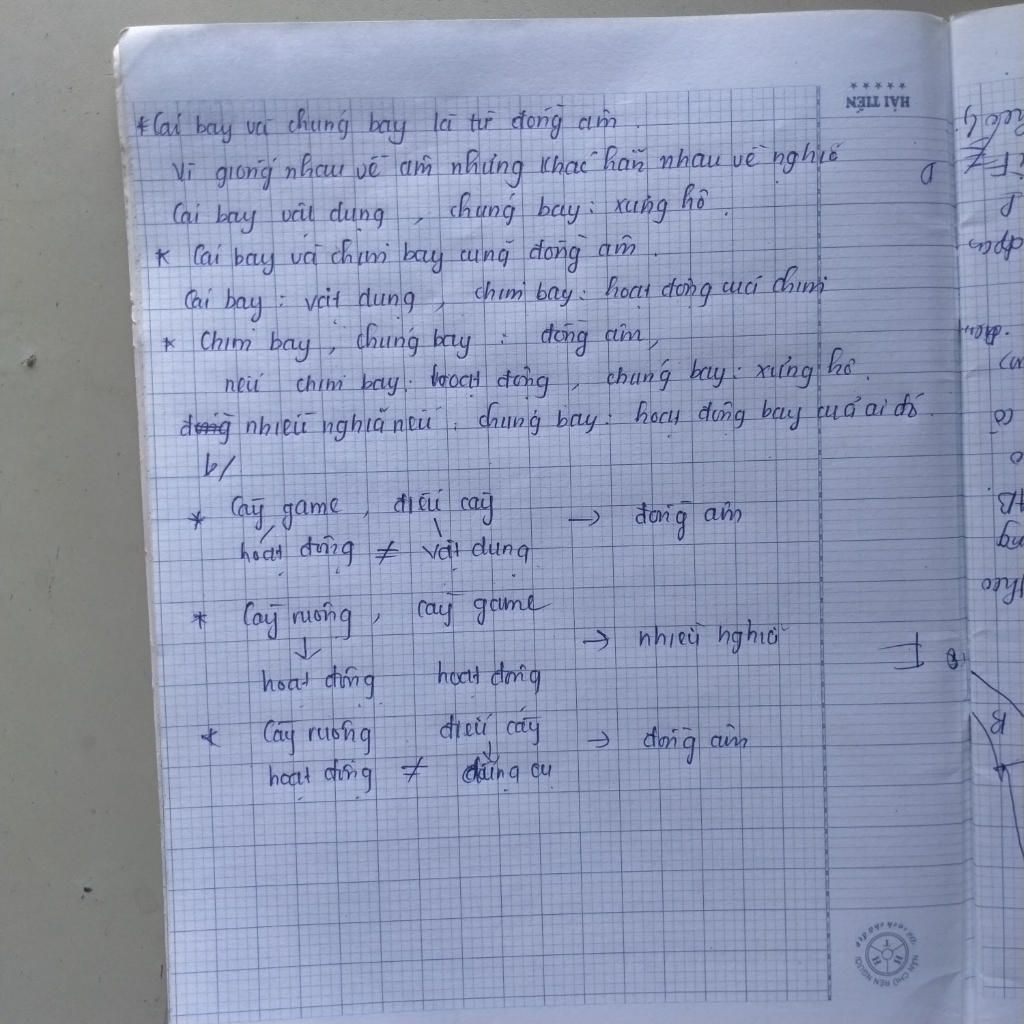 * Cái bay và chúng bay là từ đồng âm.
Vì giống nhau về âm nhưng khác hẳn nhau về nghĩa
Cái bay vật dụng, chúng bay: xưng hô.
* Cái bay và chim bay cũng đồng âm.
Cái bay: vật dụng, chim bay: hoạt động của chim
* Chim bay, chúng bay: đồng âm,
nếu chim bay: hoạt động, chúng bay: xưng hô.
nhiều nghĩa nếu: chúng bay: hoạt động bay của ai đó.
b/
* Cày game, điếu cày → đồng âm
hoạt động ≠ vật dụng
* Cày ruộng, cày game
→ nhiều nghĩa
hoạt động hoạt động
* Cày ruộng điếu cày → đồng âm
hoạt động ≠ dụng cụ
HẢI TIẾN